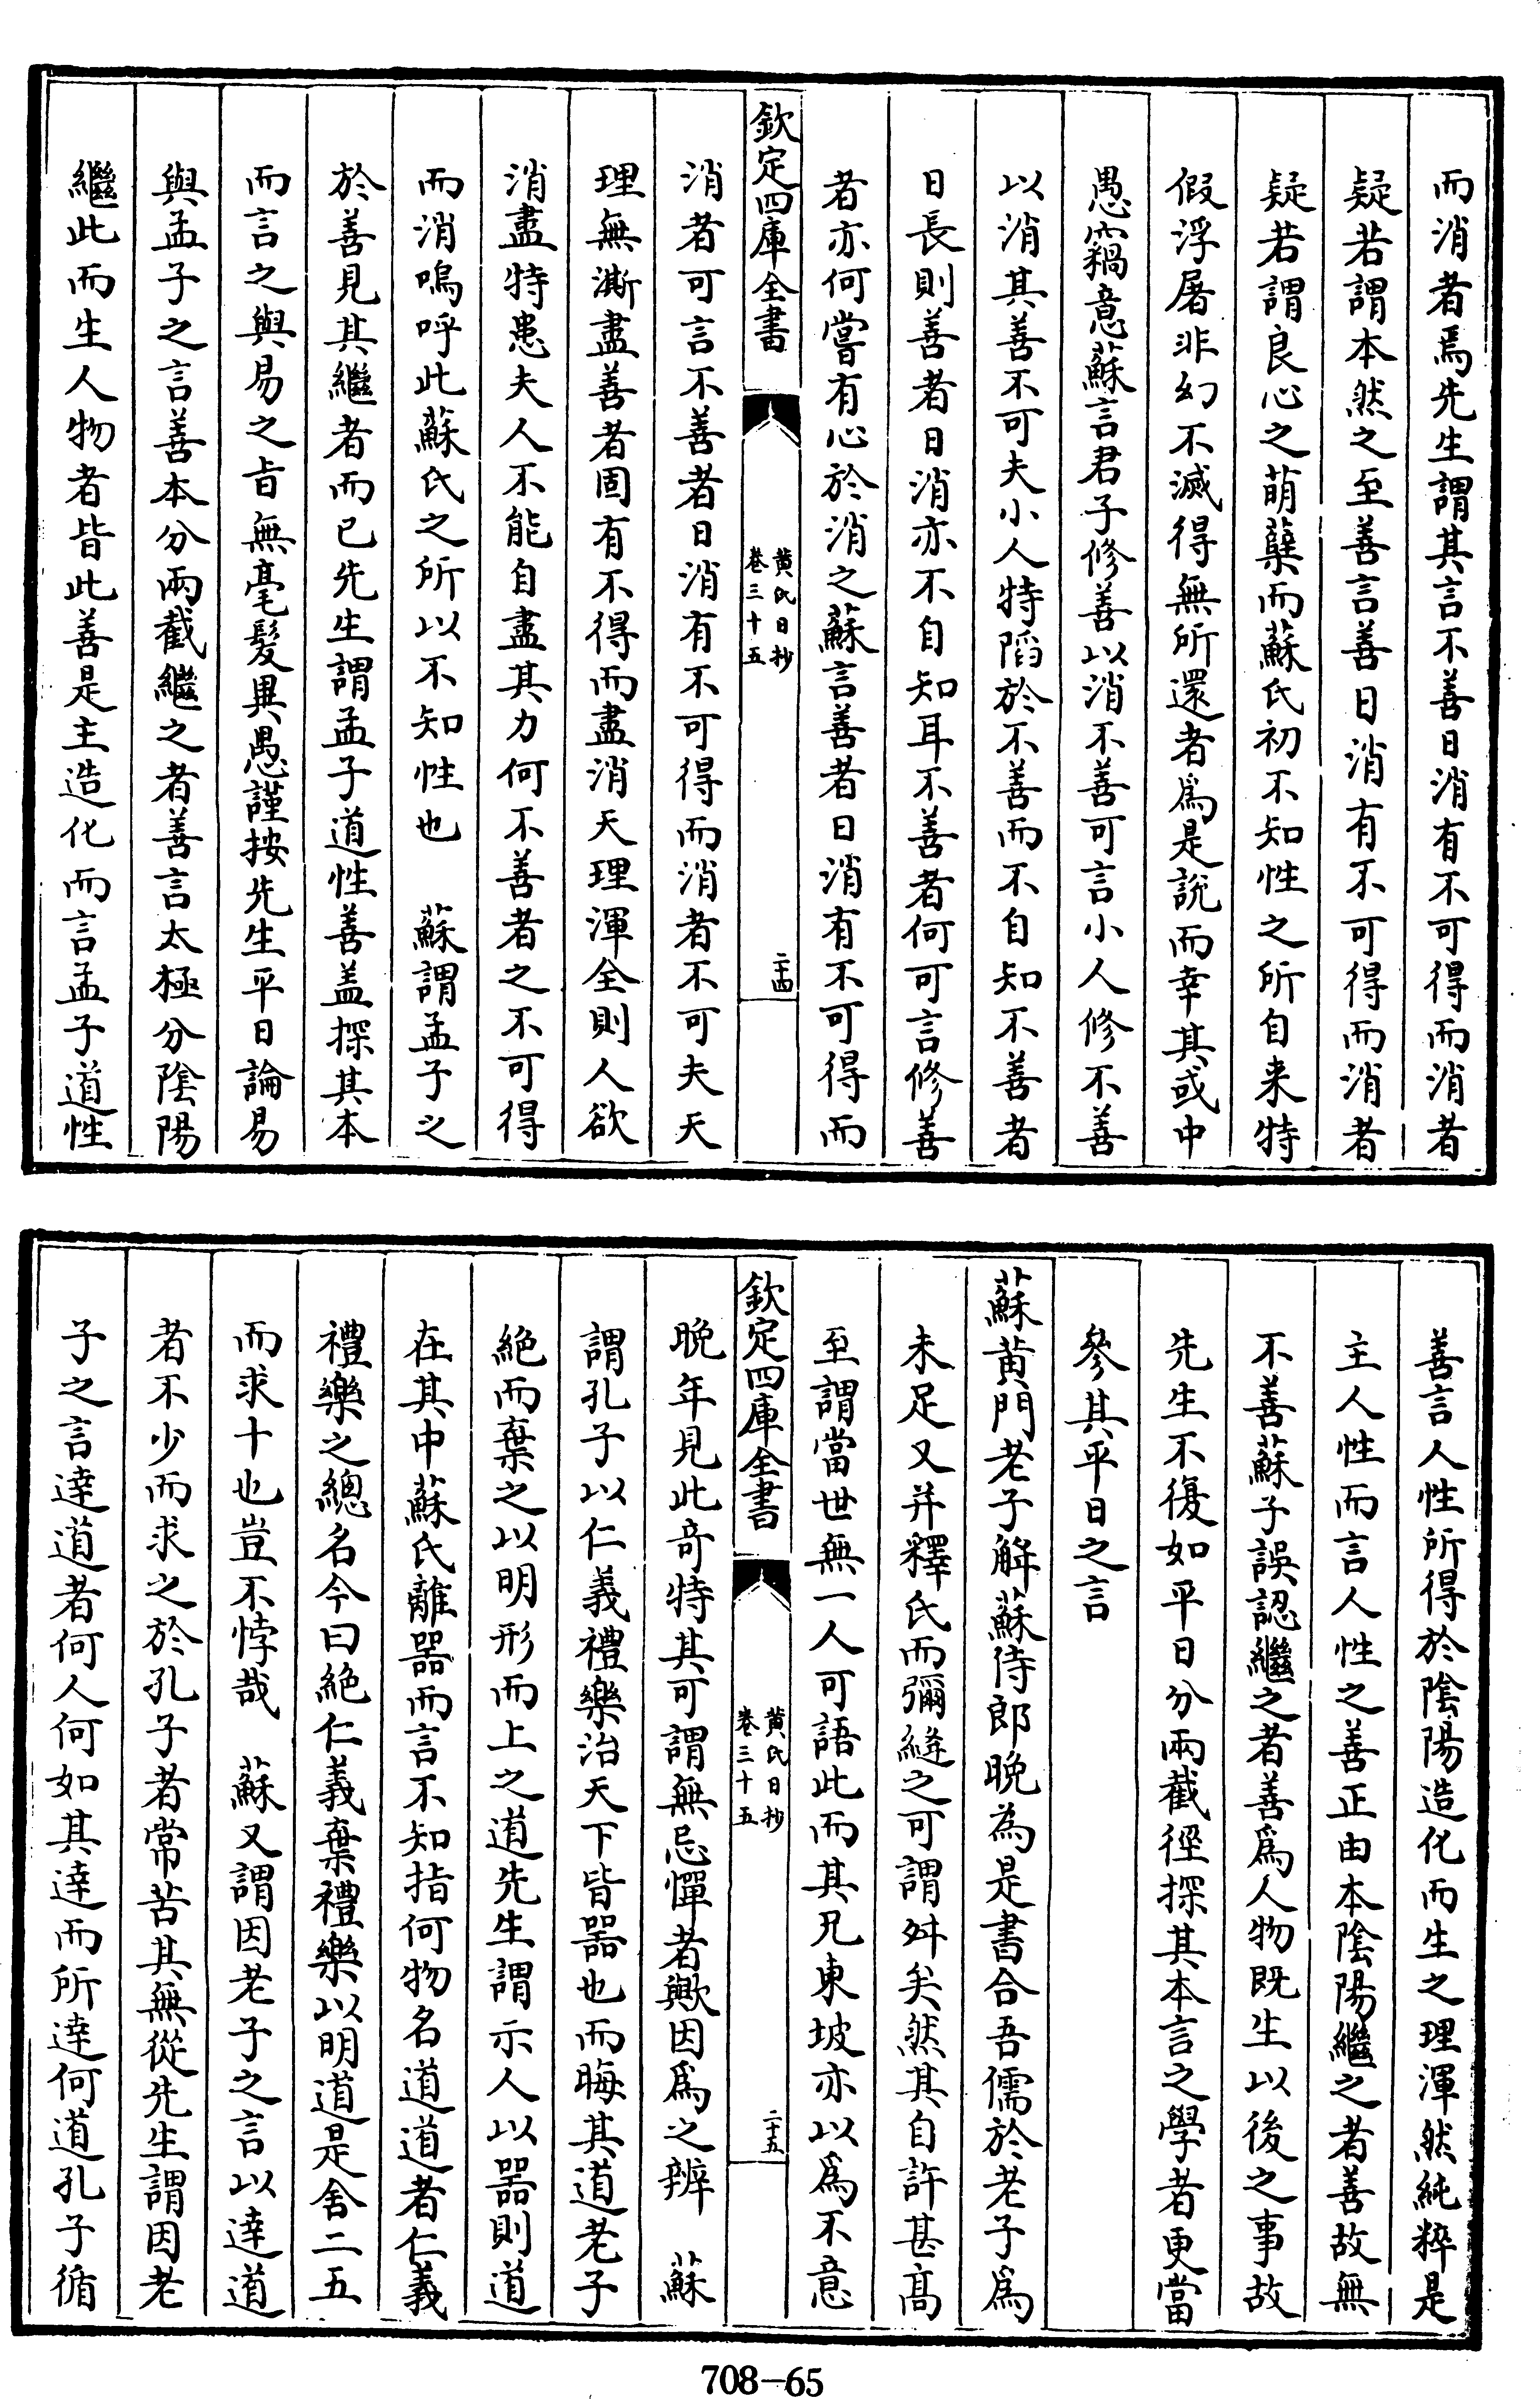 而消者焉先生謂其言不善日消有不可得而消者
疑若謂本然之至善言善日消有不可得而消者
疑若謂良心之萌蘖而蘇氏初不知性之所自来特
假浮屠非幻不滅得無所還者爲是說而幸其或中
愚竊意蘇言君子修善以消不善可言小人修不善
以消其善不可夫小人特䧟於不善而不自知不善者
日長則善者日消亦不自知耳不善者何可言修善
者亦何嘗有心於消之蘇言善者日消有不可得而
欽定四庫全書
黄氏日抄
卷三十五
二十四
消者可言不善者日消有不可得而消者不可夫天
理無澌盡善者固有不得而盡消天理渾全則人欲
消盡特患夫人不能自盡其力何不善者之不可得
而消嗚呼此蘇氏之所以不知性也　蘇謂孟子之
於善見其繼者而已先生謂孟子道性善盖探其本
而言之與易之旨無毫髮異愚謹按先生平日論易
與孟子之言善本分兩截繼之者善言太極分陰陽
繼此而生人物者皆此善是主造化而言孟子道性
善言人性所得於陰陽造化而生之理渾然純粹是
主人性而言人性之善正由本陰陽繼之者善故無
不善蘇子誤認繼之者善爲人物既生以後之事故
先生不復如平日分兩截徑探其本言之學者更當
參其平日之言
蘇黄門老子解蘇侍郎晚為是書合吾儒於老子爲
未足又并釋氏而彌縫之可謂舛矣然其自許甚高
至謂當世無一人可語此而其兄東坡亦以爲不意
欽定四庫全書
黄氏日抄
卷三十五
二十五
晚年見此竒特其可謂無忌憚者歟因爲之辨　蘇
謂孔子以仁義禮樂治天下皆器也而晦其道老子
絶而棄之以明形而上之道先生謂示人以器則道
在其中蘇氏離器而言不知指何物名道道者仁義
禮樂之總名今曰絶仁義棄禮樂以明道是舍二五
而求十也豈不悖哉　蘇又謂因老子之言以逹道
者不少而求之於孔子者常苦其無從先生謂因老
子之言逹道者何人何如其逹而所逹何道孔子循
708—65